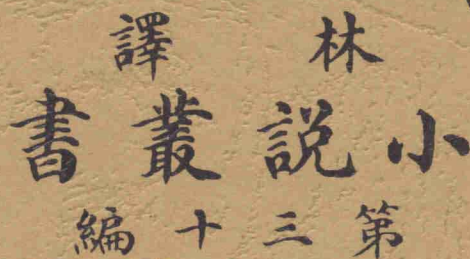 林譯
小說叢書
第三十編